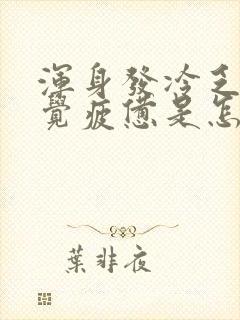 渾身發冷乏
覺疲憊是怎
葉非夜